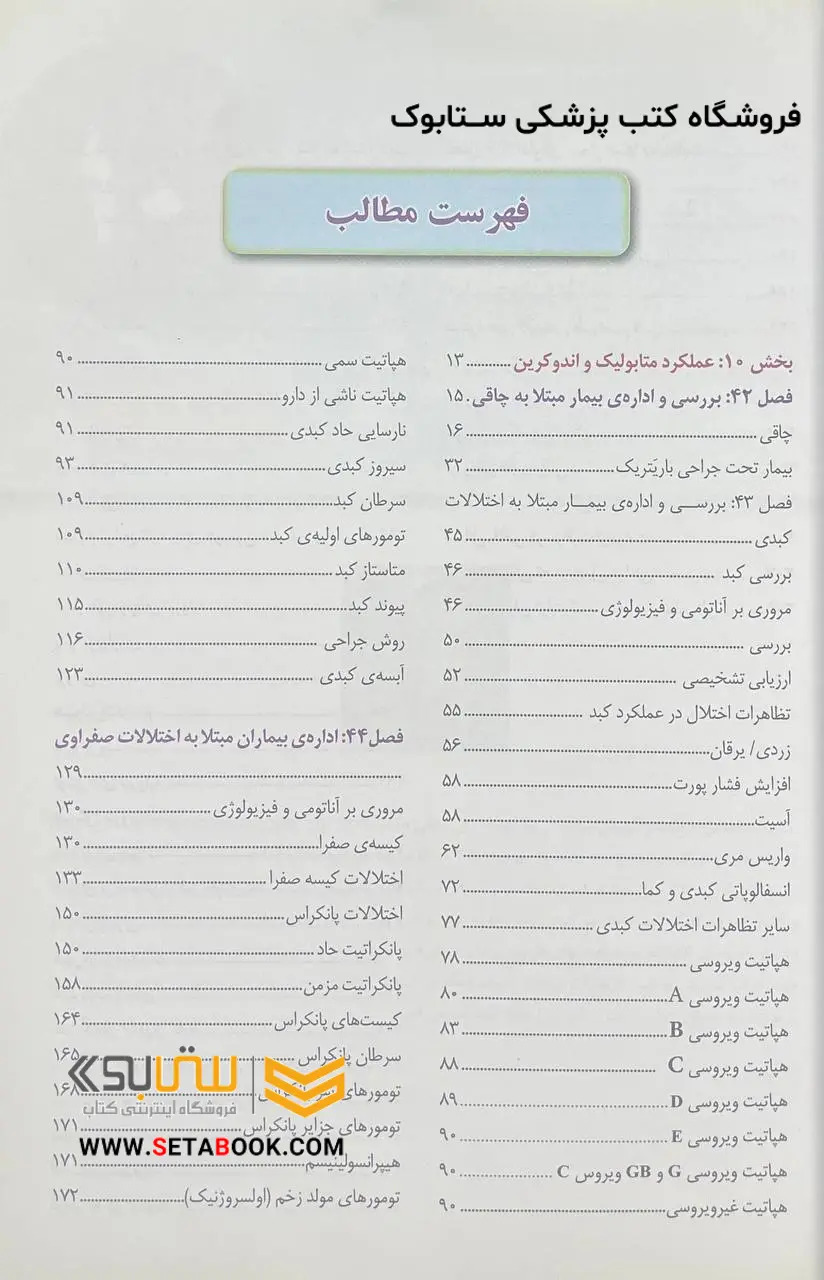 فروشگاه کتب پزشکی ستابوک
فهرست مطالب
بخش ۱۰: عملکرد متابولیک و اندوکرین ........... ۱۳
فصل ۴۲: بررسی و اداره‌ی بیمار مبتلا به چاقی . ۱۵
چاقی ........... ۱۶
بیمار تحت جراحی باریَتریک ........... ۳۲
فصل ۴۳: بررسی و اداره‌ی بیمار مبتلا به اختلالات
کبدی ........... ۴۵
بررسی کبد ........... ۴۶
مروری بر آناتومی و فیزیولوژی ........... ۴۶
بررسی ........... ۵۰
ارزیابی تشخیصی ........... ۵۲
تظاهرات اختلال در عملکرد کبد ........... ۵۵
زردی/ یرقان ........... ۵۶
افزایش فشار پورت ........... ۵۸
آسیت ........... ۵۸
واریس مری ........... ۶۲
انسفالوپاتی کبدی و کما ........... ۷۲
سایر تظاهرات اختلالات کبدی ........... ۷۷
هپاتیت ویروسی ........... ۷۸
هپاتیت ویروسی A ........... ۸۰
هپاتیت ویروسی B ........... ۸۳
هپاتیت ویروسی C ........... ۸۸
هپاتیت ویروسی D ........... ۸۹
هپاتیت ویروسی E ........... ۹۰
هپاتیت ویروسی G و GB ویروس C ........... ۹۰
هپاتیت غیرویروسی ........... ۹۰
هپاتیت سمی ........... ۹۰
هپاتیت ناشی از دارو ........... ۹۱
نارسایی حاد کبدی ........... ۹۱
سیروز کبدی ........... ۹۳
سرطان کبد ........... ۱۰۹
تومورهای اولیه‌ی کبد ........... ۱۰۹
متاستاز کبد ........... ۱۱۰
پیوند کبد ........... ۱۱۵
روش جراحی ........... ۱۱۶
آبسه‌ی کبدی ........... ۱۲۳
فصل ۴۴: اداره‌ی بیماران مبتلا به اختلالات صفراوی
........... ۱۲۹
مروری بر آناتومی و فیزیولوژی ........... ۱۳۰
کیسه‌ی صفرا ........... ۱۳۰
اختلالات کیسه صفرا ........... ۱۳۳
اختلالات پانکراس ........... ۱۵۰
پانکراتیت حاد ........... ۱۵۰
پانکراتیت مزمن ........... ۱۵۸
کیست‌های پانکراس ........... ۱۶۴
سرطان پانکراس ........... ۱۶۵
تومورهای سر پانکراس ........... ۱۶۸
تومورهای جزایر پانکراس ........... ۱۷۱
هیپرانسولینیسم ........... ۱۷۱
تومورهای مولد زخم (اولسروژنیک) ........... ۱۷۲
ستابوک
فروشگاه اینترنتی کتاب
WWW.SETABOOK.COM